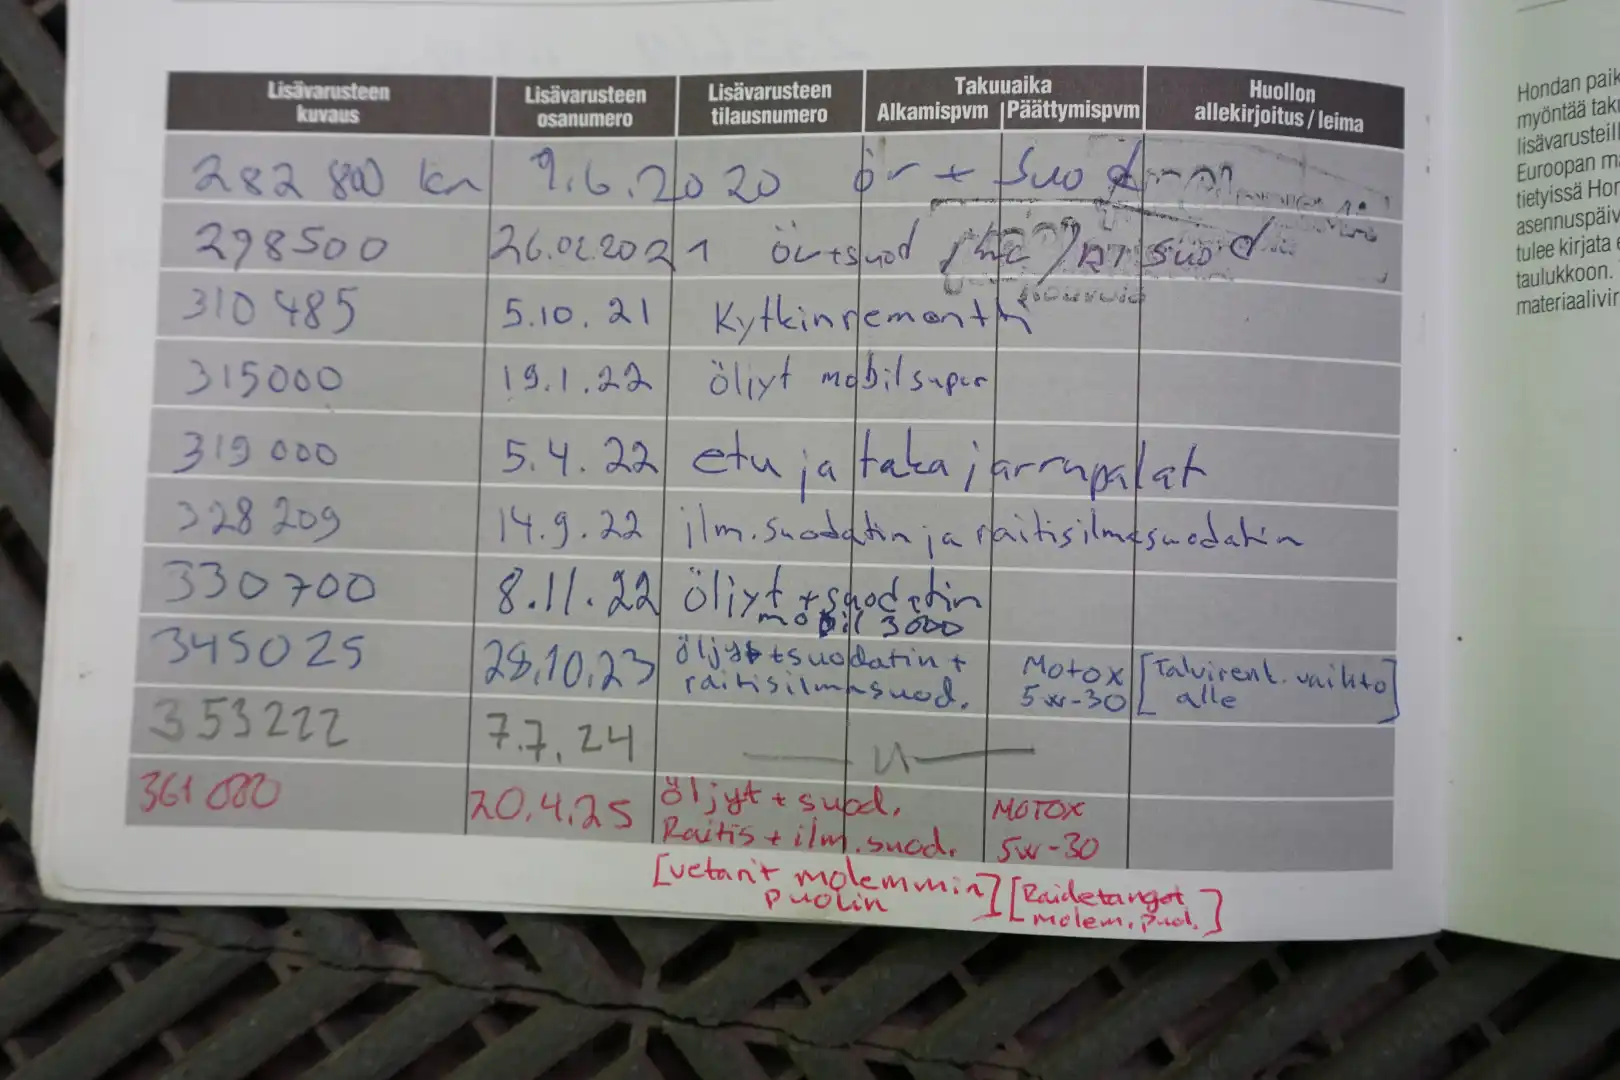 Lisävarusteen kuvaus
Lisävarusteen osanumero
Lisävarusteen tilausnumero
Takuuaika
Alkamispvm Päättymispvm
Huollon allekirjoitus / leima
282 800 km 9.6.2020 ör + suod
298500 26.02.2021 ör+suod suod
310 485 5.10.21 Kytkinremontti
315000 19.1.22 öljyt mobilsuper
319 000 5.4.22 etu ja taka jarrupalat
328 209 14.9.22 ilm.suodatin ja raitisilmasuodatin
330 700 8.11.22 Öljyt + suodatin
mobil 3000
345025 28.10.23 öljyt+suodatin + Motox [Talvirenk. vaihto
raitisilmasuod. 5w-30 alle]
353222 7.7.24 —〃—
361 080 20.4.25 Öljyt + suod. MOTOX
Raitis + ilm.suod. 5w-30
[vetarit molemmin puolin] [Raidetangot molem. puol.]
Hondan paik
myöntää taku
lisävarusteill
Euroopan ma
tietyissä Hon
asennuspäiv
tulee kirjata
taulukkoon.
materiaalivir